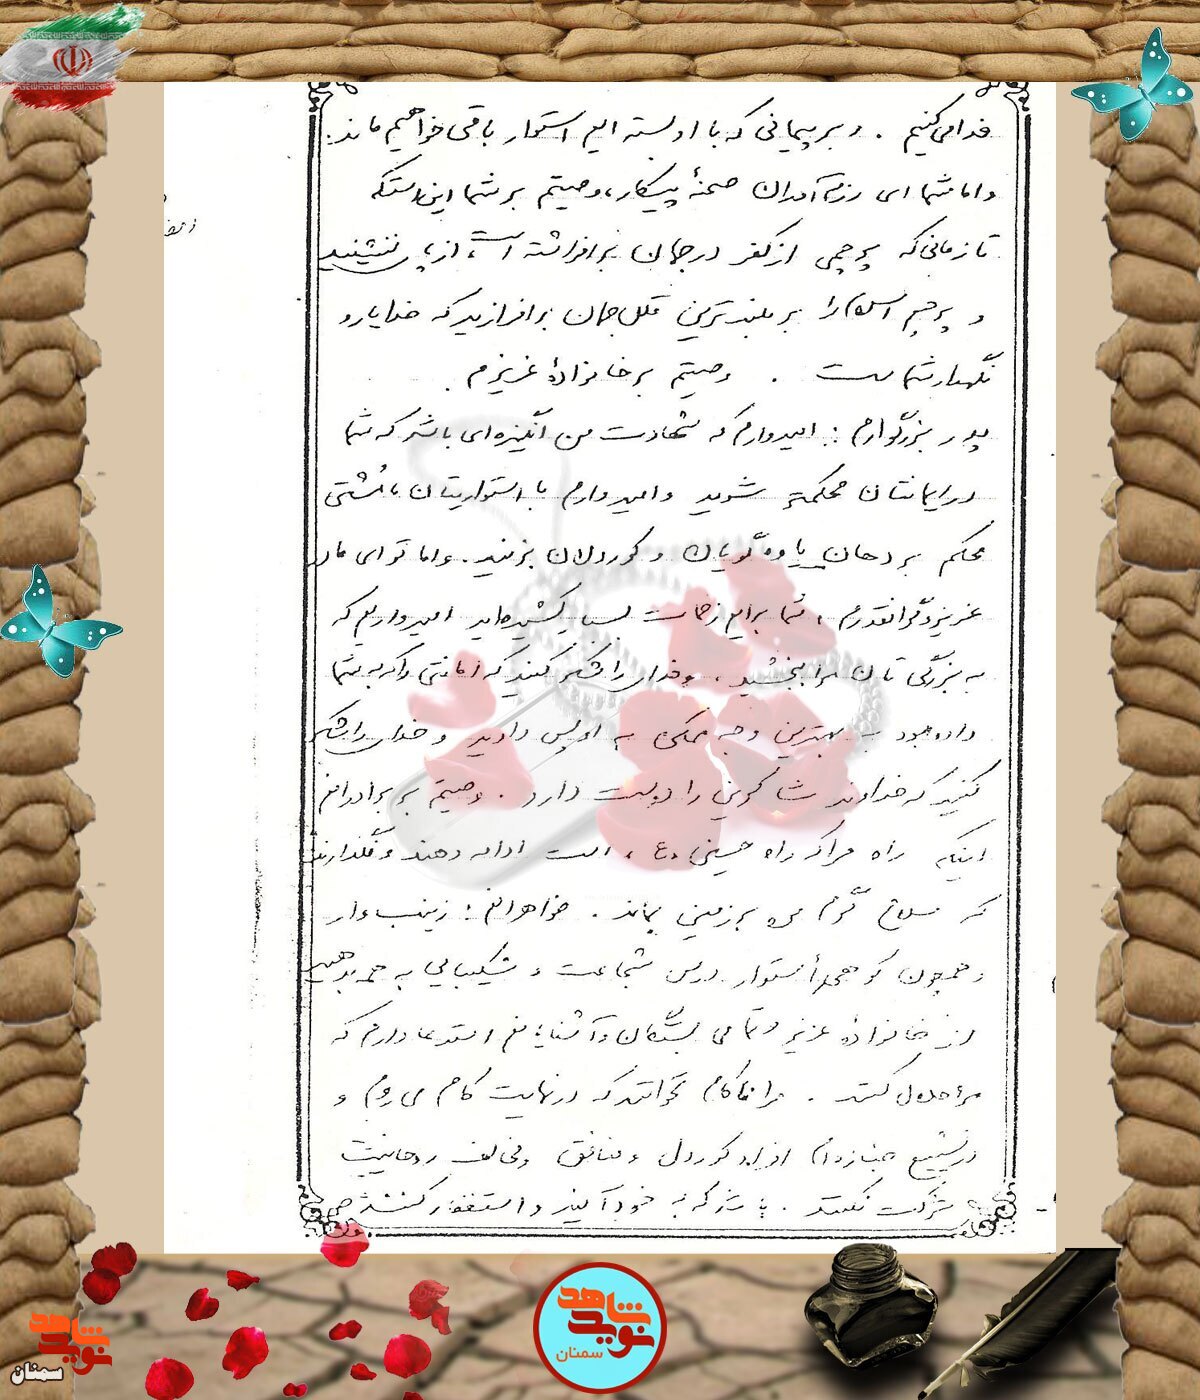 فدا می‌کنیم . و بر پیمانی که با او بسته ایم استوار باقی خواهیم ماند.
و اما شما ای رزم‌آوران صحنهٔ پیکار، وصیتم بر شما این استکه
تا زمانی که پرچمی از کفر در جهان برافراشته است، از پا ننشینید
و پرچم اسلام را بر بلندترین قلل جهان برافرازید که خدا یار و
نگهدار شماست . وصیتم بر خانوادهٔ عزیزم .
پدر بزرگوارم : امیدوارم که شهادت من انگیزه‌ای باشد که شما
در ایمانتان محکمتر شوید و امیدوارم با استواریتان مشتی
محکم بر دهان یاوه گویان و کوردلان بزنید. و اما تو ای مادر
عزیز و گرانقدرم ، شما برایم زحمات بسیار کشیده‌اید امیدواریم که
به بزرگی تان مرا ببخشید ، و خدای را شکر کنید که امانتی را که به شما
داده بود به بهترین وجه ممکن به او پس دادید و خدای را شکر
کنید که خداوند شاکرین را دوست دارد . وصیتم بر برادرانم
اینکه راه مرا که راه حسین (ع) است ادامه دهند و نگذارند
که سلاح گرم من بر زمین بماند . خواهرانم : زینب وار
و همچون کوهی استوار درس شجاعت و شکیبایی به همه بدهید
از خانوادهٔ عزیز و تمامی بستگان و آشنایانم استدعا دارم که
مرا حلال کنند . مرا ناکام نخوانند که در نهایت کام می روم و
در تشییع جنازه‌ام افراد کوردل و منافق و مخالف روحانیت
شرکت نکنند . باشد که به خود آیند و استغفار کنند
شاهد
نوید
سمنان
شاهد
نوید
سمنان